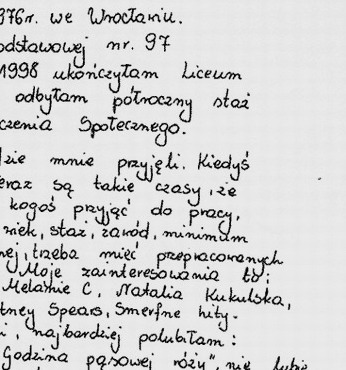 976r. we Wrocławiu.
odstawowej nr. 97
1998 ukończyłam Liceum
odbyłam półroczny staż
czenia Społecznego.
dzie mnie przyjęli. Kiedyś
eraz są takie czasy, że
kogoś przyjąć do pracy,
wiek, staż, zawód, minimum
nej, trzeba mieć przepracowanych
Moje zainteresowania to:
Melanie C, Natalia Kukulska,
tney Spears, Smerfne hity.
i, najbardziej polubiłam:
Godzina pąsowej róży", nie lubię